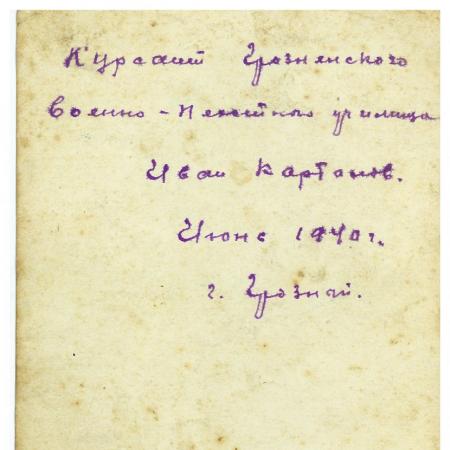 Курсант Грозненского
Военно-Пехотного училища
Иван Картанов.
Июнь 1940 г.
г. Грозный.